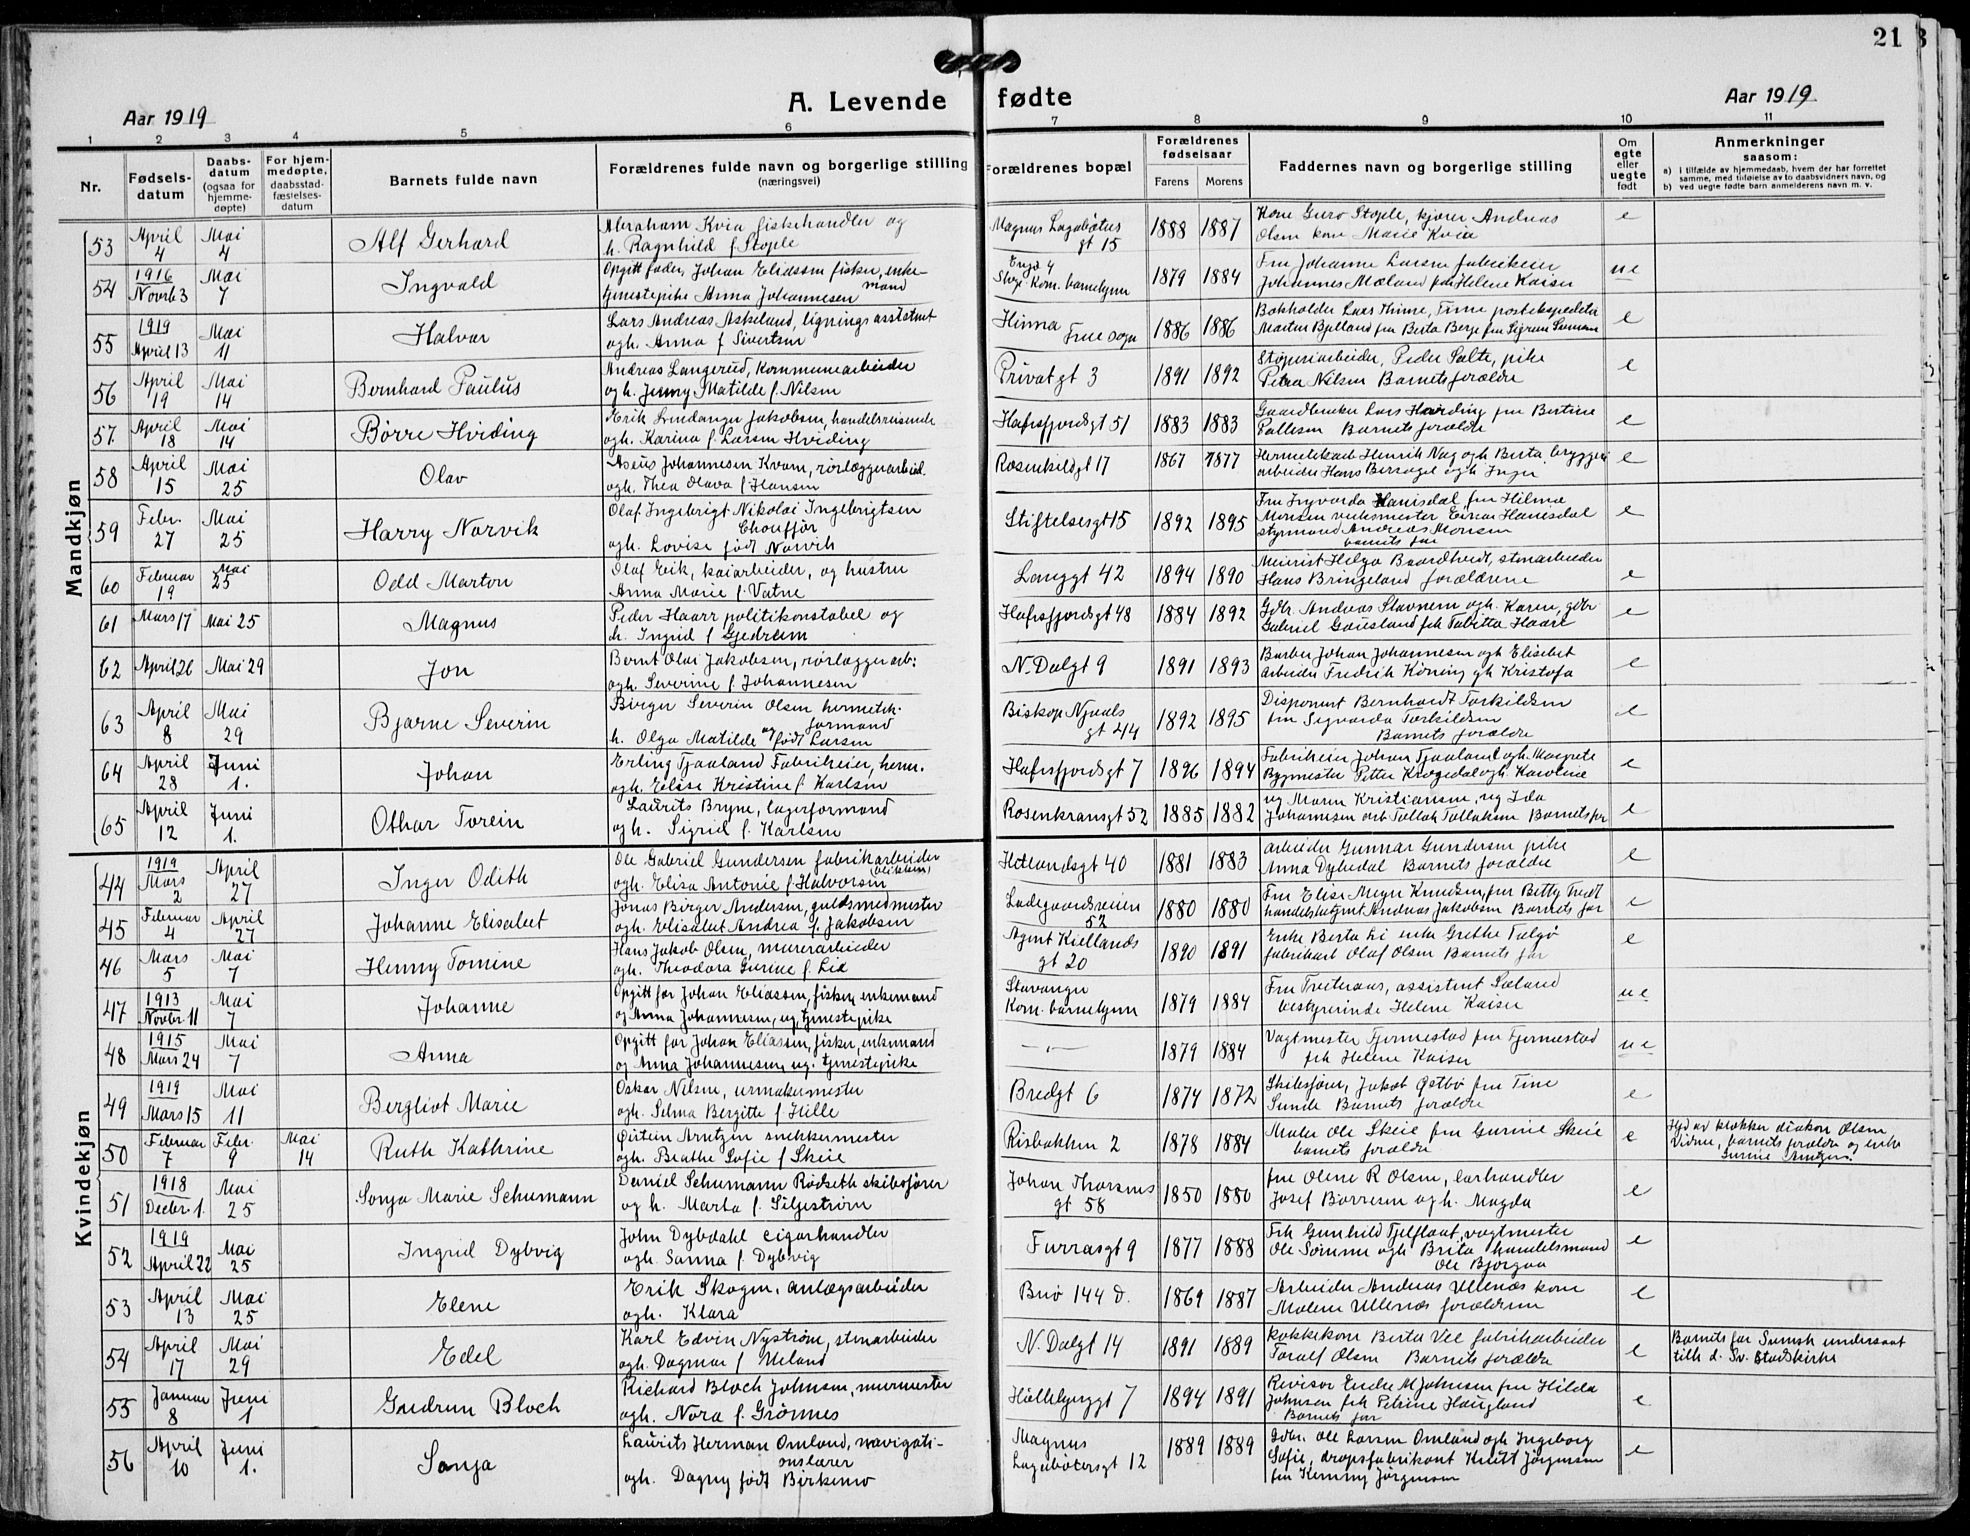 21
A. Levende fødte
Aar 1919
Aar 1919
1 2 3 4 5 6 7 8 9 10 11
Nr.
Fødsels-
datum
Daabs-
datum
(ogsaa for
hjemme-
døpte)
For hjem-
medøpte,
daabsstad-
fæstelses-
datum
Barnets fulde navn
Forældrenes fulde navn og borgerlige stilling
(næringsvei)
Forældrenes bopæl
Forældrenes
fødselsaar
Farens Morens
Faddernes navn og borgerlige stilling
Om
egte
eller
uegte
født
Anmerkninger
saasom:
a) I tilfælde av hjemmedaab, hvem der har forrettet
samme, med tilføielse av to daabsvidners navn, og
b) ved uegte fødte barn anmelderens navn m. v.
Mandkjøn
53 April 4 Mai 4 Alf Gerhard
Abraham Kvia fiskehandler og
h. Ragnhild f Stople
Magnus Lagabøtus
gt 15
1888 1887
Kone Guro Stople, kjører Andreas
Olsen kone Marie Kvia
e
54 1916 Novbr 3 Mai 7 Ingvald
Opgitt fader, Johan Eliassen fisker, enke-
mand
tjenestepike Anna Johannesen
Kom. barnehjem
1879 1884
Fru Johanne Larsen fabrikeier
Johannes Mæland frk Helene Kaiser
ue
55 1919 April 13 Mai 11 Halvar
Lars Andreas Askeland, ligningsassistent
ogh. Anna f Sivertsen
Hinna
Frue sogn
1886 1886
Bokholder Lars Thime, Time postekspeditør
Martin Bjelland fru Berta Berge fru Sigrun
e
56 April 19 Mai 14 Bernhard Paulus
Andreas Langerud, Kommunearbeider
ogh. Jenny Matilde f. Nilsen
Privatgt 3
1891 1892
Støperiarbeider, Peder Salte, pike
Petra Nilsen Barnets forældre
e
57 April 18 Mai 14 Børre Hviding
Erik Lindanger Jakobsen, handelsreisende
ogh. Karina f. Larsen Hviding
Hafrsfjordsgt 51
1883 1883
Gaardbruker Lars Hviding fru Bertine
Pallesen Barnets forældre
e
58 April 15 Mai 25 Olav
Johannesen Kvam, rørlæggerarbeid.
ogh. Thea Olava f Hansen
Rosenkildgt 17
1867 1877
Hermetikarb Henrik Nag ogh Berta brygger
arbeider Hans Bersagel ogh Inger
e
59 Febr. 27 Mai 25 Harry Norvik
Olaf Ingebrigt Nikolai Ingebrigtsen
Chouffør
ogh. Lovise født Norvik
Stiftelsesgt 15
1892 1895
Fru Ingvarda Hanisdal fru Hilma
Monsen verksmester Einar Hanisdal
styrmand Andreas Monsen
barnets far
e
60 Februar 19 Mai 25 Odd Marton
Olaf Eik, kaiarbeider, og hustru
Anna Marie f. Vatne
Langgt 42
1894 1890
Meierist Helga Baardtvedt, stenarbeider
Hans Bringeland forældrene
e
61 Mars 17 Mai 25 Magnus
Peder Haarr politikonstabel og
h. Ingrid f Gjedrem
Hafrsfjordsgt 48
1884 1892
Gdbr. Andreas Stavnem ogh. Karen, gdbr
Gabriel Gausland frk Tabitta Haarr
e
62 April 26 Mai 29 Jon
Bernt Olai Jakobsen, rørlæggerarb:
ogh. Severine f. Johannesen
N-Dalgt 9
1891 1893
Barber Johan Johannesen ogh Elisebet
Arbeider Fredrik Kørnig gh Kristofa
e
63 April 8 Mai 29 Bjarne Severin
Birger Severin Olsen hermetik-
formand
h. Olga Matilde og født Larsen
Biskop Njaals
gt 44
1892 1895
Disponent Bernhardt Torkildsen
fru Sigvarda Torkildsen
Barnets forældre
e
64 April 28 Juni 1. Johan
Erling Tjaaland Fabrikeier, herm.
ogh. Elise Kristine f Karlsen
Hafrsfjordsgt 7
1896 1894
Fabrikeier Johan Tjaaland ogh. Margrete
Bygmester Petter Krogedal ogh. Karoline
e
65 April 12 Juni 1. Othar Torein
Laurits Bryne, lagerformand
ogh. Sigrid f. Karlsen
Rosenkransgt 52
1885 1882
ug Maren Kristiansen, ug Ida
Johannesen arb Tollak Tollaksen Barnets far
e
Kvindekjøn
44 1919 Mars 2 April 27 Inger Odith
Ole Gabriel Gundersen fabrikarbeider
(blikken)
ogh. Elisa Antonie f Halvorsen
Hetlandsgt 40
1881 1883
arbeider Gunnar Gundersen pike
Anna Dybedal Barnets forældre
e
45 Februar 4 April 27 Johanne Elisabet
Jonas Birger Andersen, guldsmedmester
ogh. Elisabet Andrea f. Jakobsen
Ladegaardsveien
52
1880 1880
Fru Elise Meyer Knudsen, fru Betty Tvedt
handelsbetjent Andreas Jakobsen Barnets far
e
46 Mars 5 Mai 7 Henny Tomine
Hans Jakob Olsen, murerarbeider
ogh. Theodora Gurine f. Lie
Agent Kiellands
gt 20
1890 1891
Enke Berta Li enke Grethe Talgø
fabrikarb Olaf Olsen Barnets far
e
47 1913 Novbr. 11 Mai 7 Johanne
Opgitt far Johan Eliassen, fisker, enkemand
og Anna Johannesen, ug, tjenestepike
Stavanger
Kom. barnehjem
1879 1884
Fru Tveteraas, assistent Sæland
bestyrerinde Helene Kaiser
ue
48 1915 Mars 24 Mai 7 Anna
Opgitt far Johan Eliassen, fisker, enkemand
og Anna Johannesen, ug. tjenestepike
— „ —
1879 1884
Vagtmester Tjemestad fru Tjermestad
frk Helene Kaiser
ue
49 1919 Mars 15 Mai 11 Bergliot Marie
Oskar Nilsen, urmakermester
ogh. Selma Bergitte f Hille
Bredgt 6
1874 1872
Skibsfører, Jakob Østbø fru Tine
Sunde Barnets forældre
e
50 Februar 7 Febr. 9 Mai 14 Ruth Kathrine
Øistein Arntzen snekkermester
ogh. Beathe Sofie f Skeie
Risbakken 2
1878 1884
Maler Ole Skeie fru Gurine Skeie
barnets forældre
e
Hjd av klokker diakon Olsen
Vidner, barnets forældre og enke
Gurine Arntzen.
51 1918 Decbr 1. Mai 25 Sonja Marie Schumann
Daniel Schumann Rødseth skibsfører
og h. Marta f. Siljestrøm
Johan Thorsens
gt 58
1850 1880
fru Olene R Olsen, lærhandler
Josef Børresen ogh. Magda
e
52 1919 April 22 Mai 25 Ingrid Dybvig
John Dybdahl cigarhandler
ogh. Sanna f. Dybvig
Furrasgt 9
1877 1888
Frk Gunhild Fjelflaat, vagtmester
Ole Sømme ogh Brita handelsmand
Ole Bjorgaa
e
53 April 13 Mai 25 Elene
Erik Skogen, anlægsarbeider
ogh. Klara
Buø 144 d.
1869 1887
Arbeider Andreas Ullenæs kone
Malene Ullenæs forældrene
e
54 April 17 Mai 29 Edel
Karl Edvin Nystrøm, stenarbeider
ogh. Dagmar f Meland
N. Dalgt 14
1891 1889
kokkekone Berta Vee fabrikarbeider
Toralf Olsen Barnets forældre
e
Barnets far Svensk undersaat
tilh d. Sv. Stadskirke
55 Januar 8 Juni 1 Gudrun Bloch
Richard Bloch Johnsen, murmester
ogh. Nora f. Grønnes
Høllebyrggt 7
1894 1891
Revisor Endre M Johnsen fru Hilda
Johnsen frk Petrine Haugland
Barnets far
e
56 April 10 Juni 1. Sonja
Laurits Herman Omland, navigati-
onslærer
ogh. Dagny født Birkemo
Magnus
Lagabøtersgt 12
1889 1889
Gdbr. Ole Larsen Omland ogh Ingeborg
Sofie, dropsfabrikant Knutt Jörgensen
fru Kenny Jörgensen
e